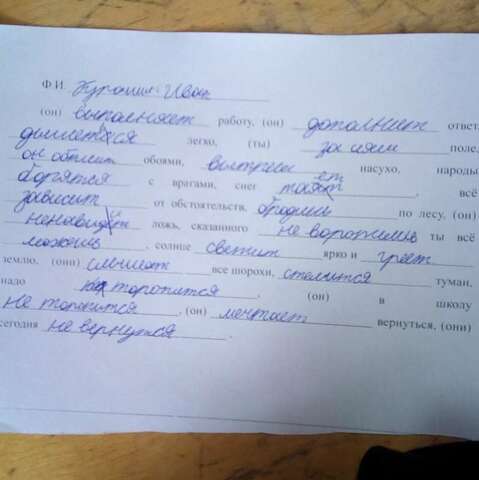 Ф.И. Иван
(он) выполняет работу, (он) дополнит ответ,
дышется легко, (ты) поле,
он обклеит обоями, вытрет насухо, народы
борятся с врагами, снег тает, всё
зависит от обстоятельств, бродишь по лесу, (он)
ненавидит ложь, сказанного не воротишь ты всё
можешь, солнце светит ярко и греет
землю, (они) слышат все шорохи, стелится туман,
надо торопится, (он) в школу
не торопится, (он) мечтает вернуться, (они)
сегодня не вернутся.